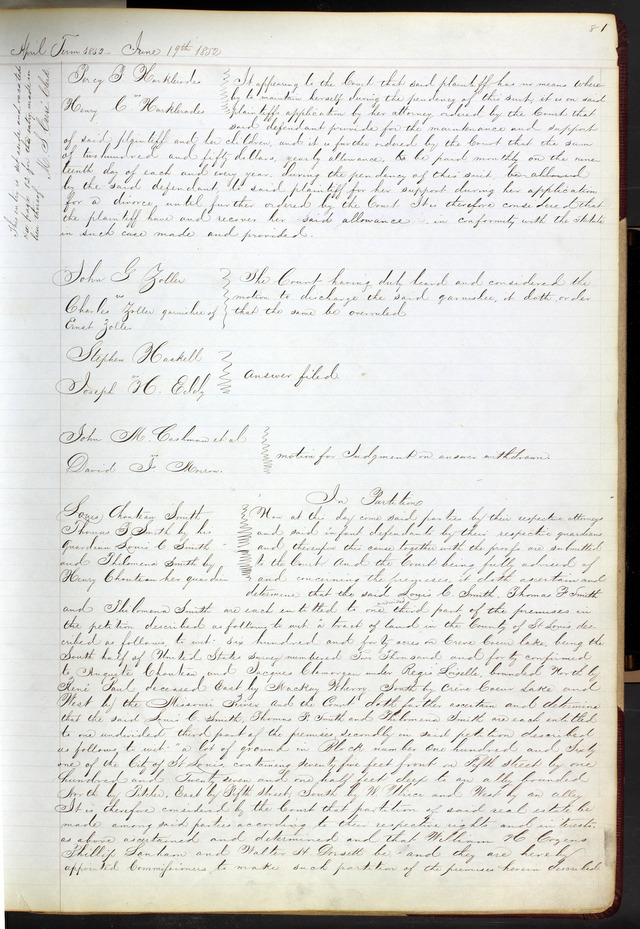 81
April Term 1852 June 19th 1852
Percy P Harklerodes
vs
Henry C Harklerodes
It appearing to the Court that said plaintiff has no means where
by to maintain herself during the pendency of this suit, it is on said
plaintiffs application by her attorney ordered by the Court that
said defendant provide for the maintenance and support
of said plaintiff and her children, and it is further ordered by the Court that the sum
of two hundred and fifty dollars, yearly allowance, to be paid monthly on the nine
teenth day of each and every year. during the pendency of this suit be allowed
by the said defendant to said plaintiff for her support during her application
for a divorce, until further ordered by the Court It is therefore considered that
the plaintiff have and recover her said allowance in conformity with the statute
in such case made and provided.
This order is set aside and
see page 83 for the entry made in
lieu thereof
John G Zoller
vs
Charles Zoller garnishee of
Ernst Zoller
The Court having duly heard and considered the
motion to discharge the said garnishee, it doth order
that the same be overruled
Stephen Haskell
vs
Joseph H. Eddy
answer filed
John M. Cashman et al
vs
David F.
motion for Judgment on answer withdrawn
In Partition
Chouteau Smith
Thomas F Smith by his
Guardian Louis C Smith
and Philomena Smith by
Henry Chouteau her guardian
Now at this day come said parties by their respective attorneys
and said infant defendants by their respective guardians
and thereupon this cause together with the proofs are submitted
to the Court And the Court being fully advised of
and concerning the premises, it doth ascertain and
determine that the said Louis C. Smith, Thomas F Smith
and Philomena Smith are each entitled to one undivided third part of the premises in
the petition described as follows to wit "a tract of land in the County of St Louis des
cribed as follows, to wit: six hundred and forty acres on Creve Coeur lake, being the
South half of United States survey numbered Two Thousand and forty confirmed
to Auguste Chouteau and Jacques Clamorgan under Regis Loiselle, bounded North by
René Paul deceased East by Mackay Wherry South by Crève Coeur Lake and
West by the Missouri River and the Court doth further ascertain and determine
that the said Louis C Smith, Thomas F. Smith and Philomena Smith are each entitled
to one undivided third part of the premises, secondly in said petition described
as follows to wit: "a lot of ground in Block number One hundred and Sixty
one of the City of St Louis containing seventy five feet front on Fifth street by one
hundred and Twenty seven and one half feet deep to an ally bounded
North by East by Fifth street, South by W Price and West by an alley
It is therefore considered by the Court that partition of said real estate be
made among said parties according to their respective rights and interests,
as above ascertained and determined and that William H Cozens
Phillip Lanham and Walter H. Dorsett be and they are hereby
appointed Commissioners to make such partition of the premises herein described